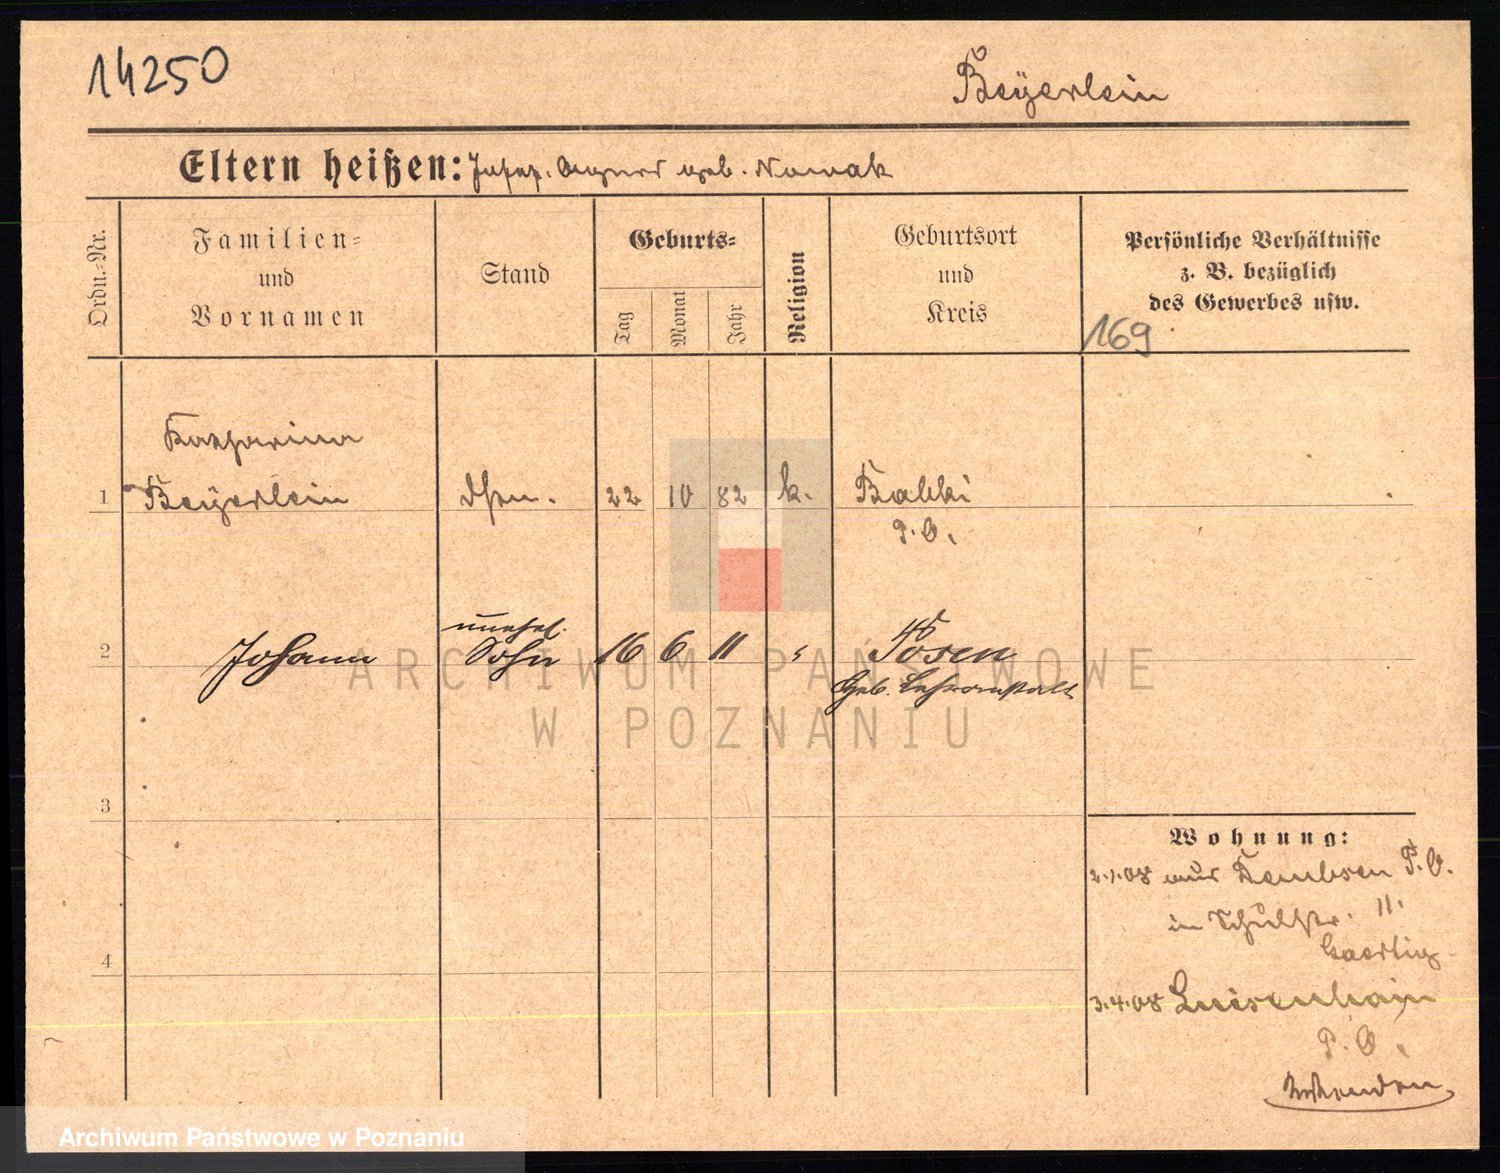 14250
Beÿerlein
Eltern heißen: Josef. Agnes geb. Nowak
Ordn.-Nr.
Familien-
und
Vornamen
Stand
Geburts-
Tag
Monat
Jahr
Religion
Geburtsort
und
Kreis
Persönliche Verhältnisse
z. B. bezüglich
des Gewerbes usw.
169
Katharina
1 Beÿerlein 22 10 82 k. Babki
P. O.
unehel.
2 Johann Sohn 16 6 11 Posen
Geb. Lehranstalt
3
4
Wohnung:
2.1.08 aus Dembsen P. O.
in Schulstr. 11.
Gaertig
3.4.08 Luisenhain
P. O.
ARCHIWUM PAŃSTWOWE
W POZNANIU
Archiwum Państwowe w Poznaniu